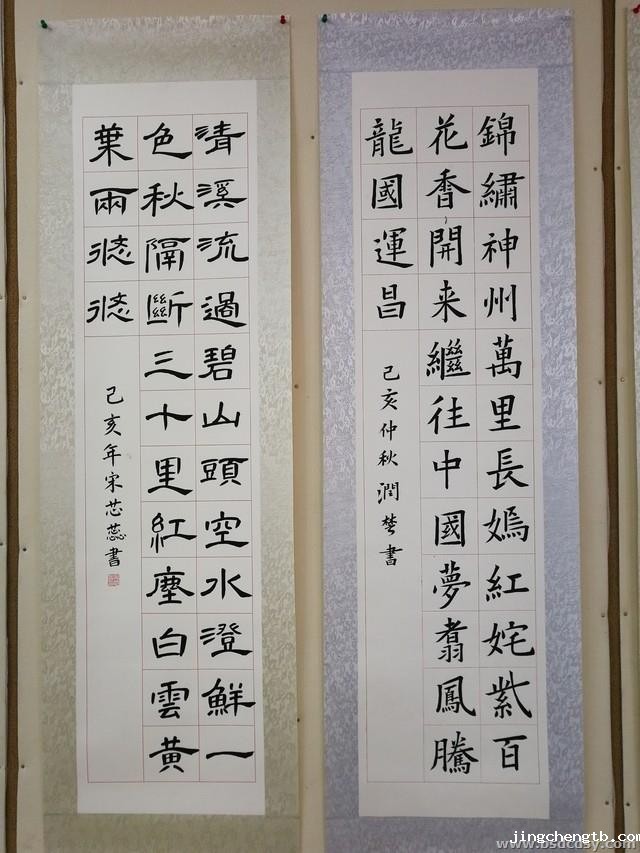 錦繡神州萬里長嫣紅姹紫百
花香開来繼往中國夢翥鳳騰
龍國運昌
己亥仲秋潤楚書
清溪流過碧山頭空水澄鮮一
色秋隔斷三十里紅塵白雲黃
葉兩悠悠
己亥年宋芯蕊書
jingchengtb.com